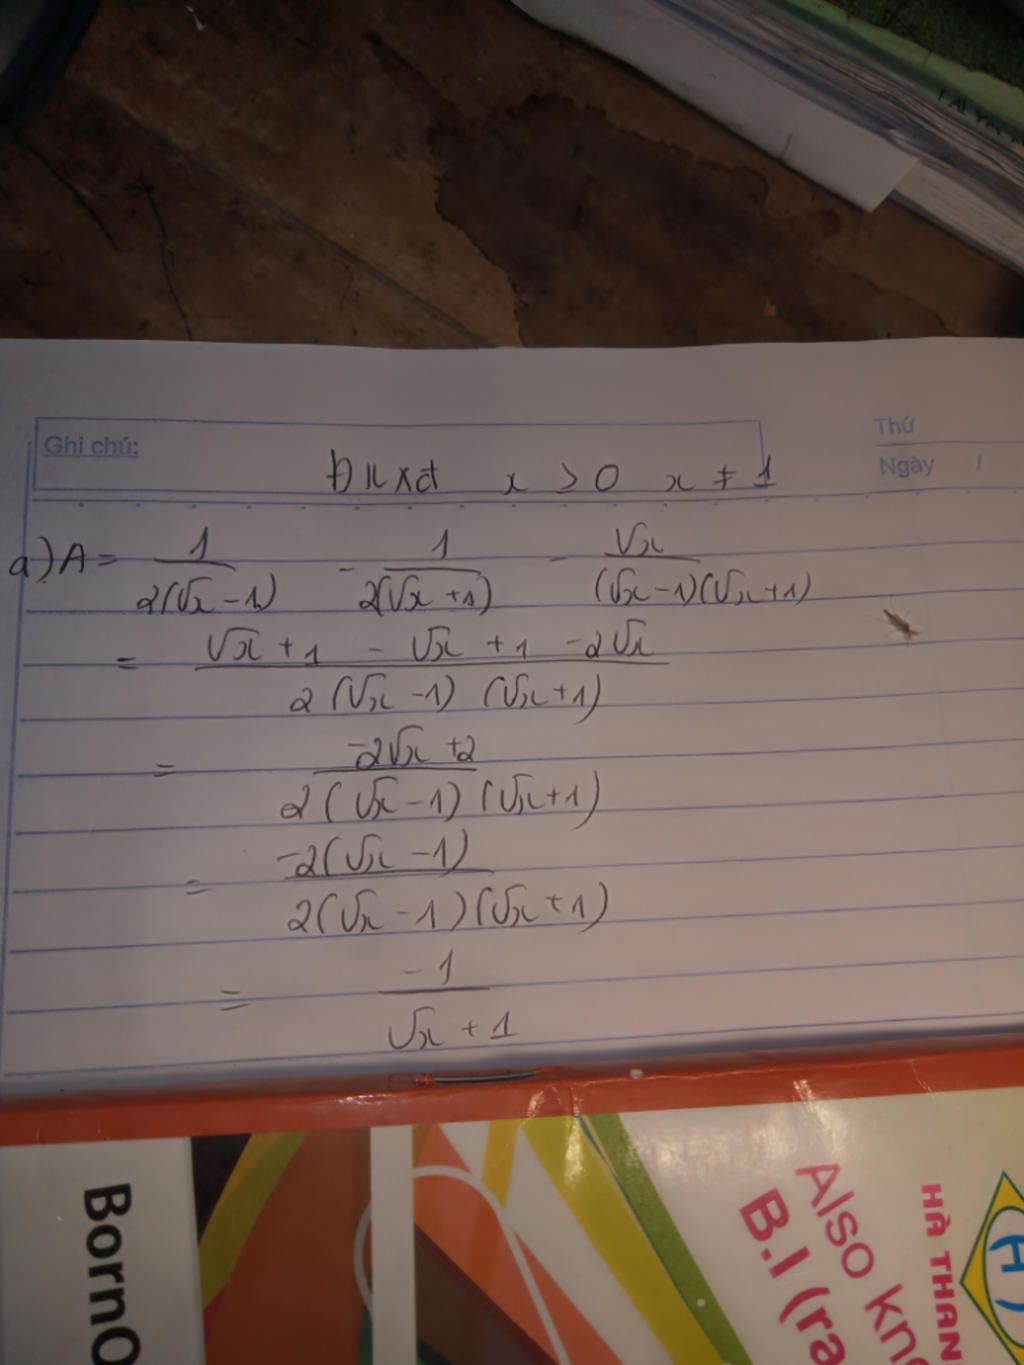 Ghi chú:
Thứ
Ngày /
Đkxđ x ≥ 0 x ≠ 1
a) A = 1/(2(√x - 1)) - 1/(2(√x + 1)) - √x/((√x - 1)(√x + 1))
= (√x + 1 - √x + 1 - 2√x)/(2(√x - 1)(√x + 1))
= (-2√x + 2)/(2(√x - 1)(√x + 1))
= (-2(√x - 1))/(2(√x - 1)(√x + 1))
= -1/(√x + 1)
Also kn
B.I (ra
HÀ THAN